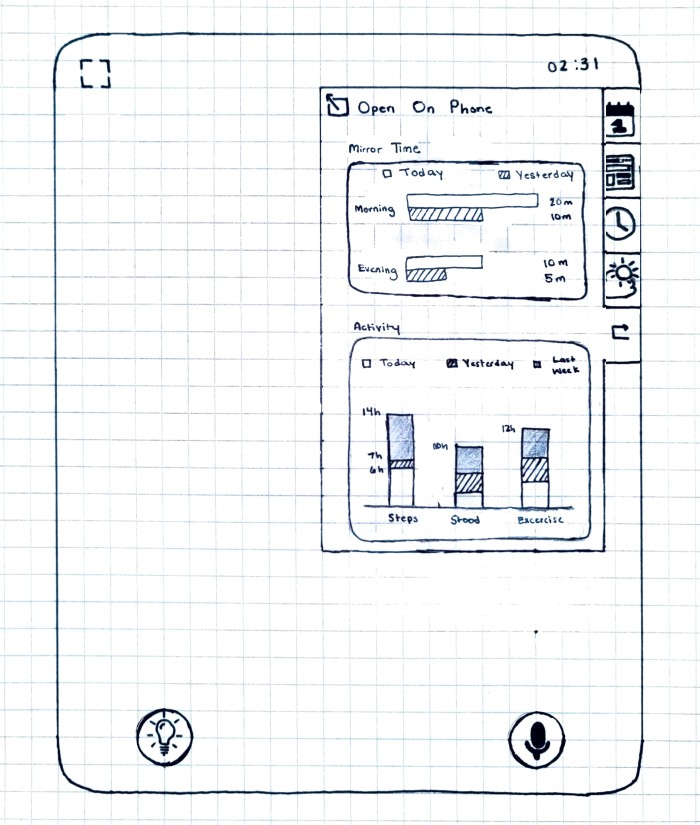 02:31
Open On Phone
1
Mirror Time
Today Yesterday
Morning 20m
10m
Evening 10m
5m
Activity
Today Yesterday Last Week
14h
7h
6h
10h
12h
Steps Stood Excercise